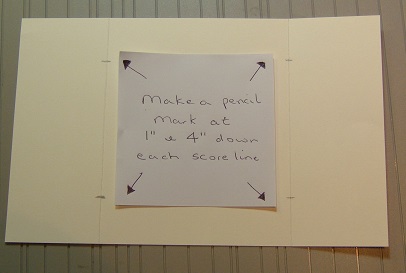 Make a pencil
mark at
1" & 4" down
each score line